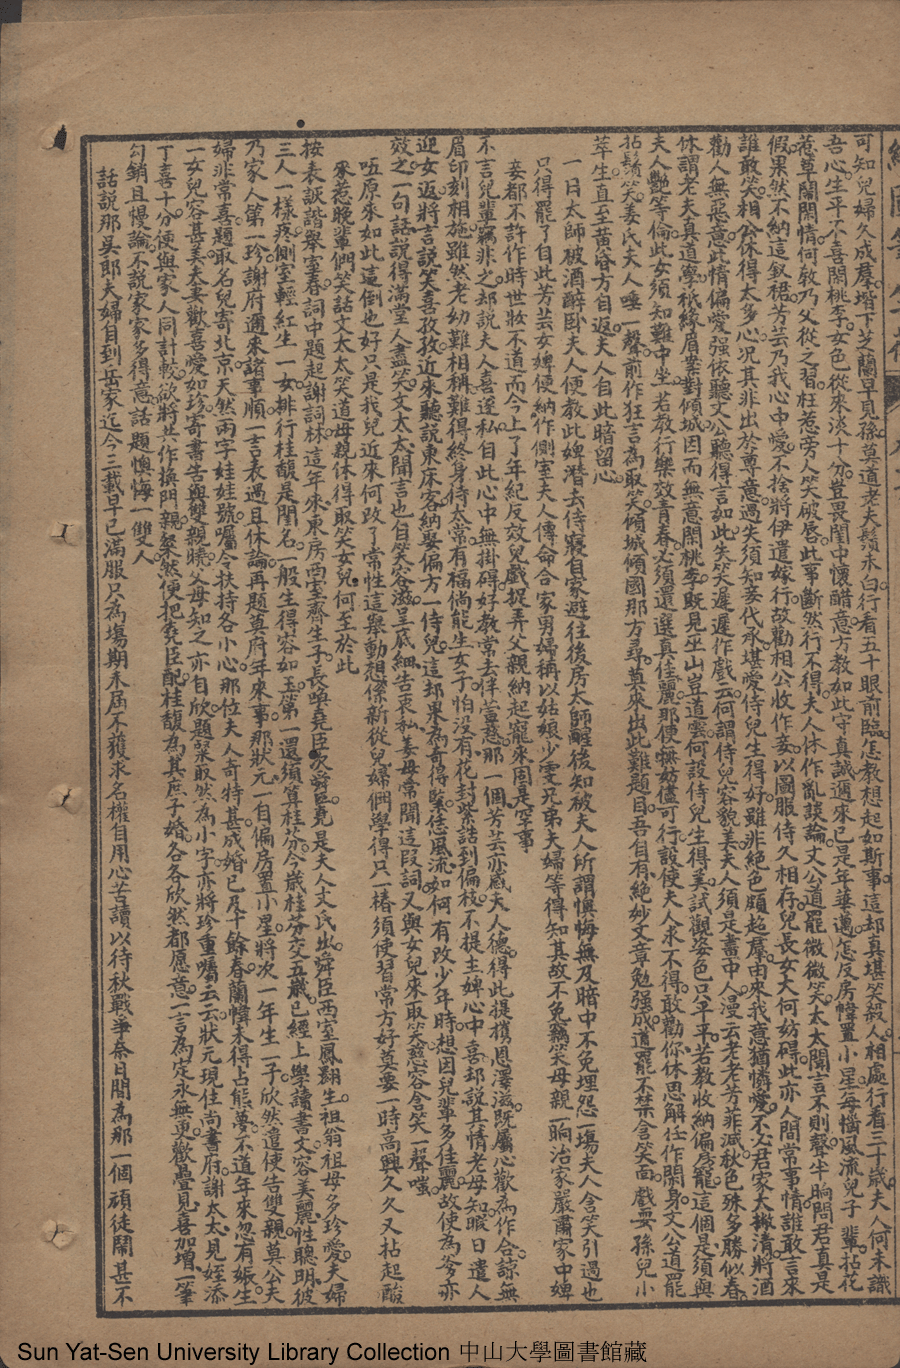 可知兒婦久成羣堦下芝蘭早見孫莫道老夫鬚未白行看五十眼前臨怎教想起如斯事這却真堪笑殺人相處行看三十歲夫人何未識
吾心生平不喜閑桃李女色從來淡十分豈畏閨中懷醋意方教如此守真誠邇來已是年華邁怎反房幃置小星每擋風流兒子輩拈花
惹草鬧閑情何敎乃父從之習枉惹旁人笑破唇此事斷然行不得夫人休作亂談論丈公道罷微微笑太太聞言不則聲半晌問君真是
假果然不納這釵裙芳芸乃我心中愛不捨將伊遣嫁行故勸相公收作妾以圖服侍久相存兒長女大何妨碍此亦人間常事情誰敢言來
誰敢笑相公休得太多心况其非出於尊意過失須知妾代承堪愛侍兒生得好雖非絕色頗超羣由來我意猶憐愛不
勸人無惡意此情偏愛強依聽文公聽得言如此失笑遲遲作戲云何謂侍兒容貌美夫人須是畫中人漫云老老芳菲減秋色殊多勝似春
休謂老夫真道學祗緣眉案對傾城因而無意閑桃李既見巫山豈道雲何設侍兒生得美試觀姿色只平平若教收納偏房寵這個是須與
夫人艷等倫此女須知難中坐若教行樂效青春必須還選真佳麗那便無妨儘可行設使夫人求不得敢勸你休思解仕作閑身文公道罷
拈鬚笑姜氏夫人唾一聲前作狂言為取笑傾城傾國那方尋莫來出此難題目吾自有絕妙文章勉強成道罷不禁含笑面戲耍孫兒小
萃生直至黃昏方自返夫人自此暗留心
一日太師被酒醉臥夫人便教此婢潛去侍寢自家避往後房太師醒後知被夫人所謂懊悔無及暗中不免埋怨一塲夫人含笑引過也
只得罷了自此芳芸女婢便納作側室夫人傳命合家男婦稱以姑娘少雯兄弟夫婦等得知其故不免竊笑母親一晌治家嚴肅家中婢
妾都不許作時世妝不道而今上了年紀反效兒戲捉弄父親納起寵來固是空事
不言兒輩竊非之却說夫人喜逞私自此心中無掛碍好教常去佯薑慈那一個芳芸亦感夫人德得此提攜恩澤滋既屬心歡為作合諒無
眉印刻相施雖然老幼難相稱難得終身侍太常有福倘能生女子怕没有花封紫誥到偏枝不提主婢心中喜却說其情老母知暇日遣人
迎女返將言說笑喜孜孜近來聽說東床客納娶偏方一侍兒這却果為奇得緊恁風流如何有改少年時想因兒輩多佳麗故使為爹亦
效之一句話說得滿堂人盡笑文太太聞言也自笑容滋呈底細告衷私姜母常聞這段詞又與女兒來取笑慈容含笑一聲嗤
呸原來如此這倒也好只是我兒近來何改了常性這舉動想係新從兒婦們學得只一樁須使習常方好莫要一時高興久久又枯起酸
來惹晚輩們笑話文太太笑道母親休得取笑女兒何至於此
按表詼諧舉室春詞中題起謝詞林這年來東房西室齊生子長喚堯臣次舜臣堯是夫人丈氏出舜臣西室鳳翾生祖翁祖母多珍愛夫婦
三人一樣疼側室輕紅生一女排行桂馥是閨名一般生得容如玉第一還須算桂芬今歲桂芬交五歲已經上學讀書文容美麗性聰明彼
乃家人第一珍謝府邇來諸事順一言表過且休論再題莫府年來事那狀元一自偏房置小星將次一年生一子欣然遣使告雙親莫公夫
婦非常喜題取名兒寄北京天然兩字娃娃號囑令扶持各小心那位夫人奇特甚成婚已及十餘春蘭幃未得占熊夢不道年來忽有娠生
一女兒容甚美夫妾歡喜愛如珍寄書告與雙親曉父母知之亦自欣題粲取然為小字亦將珍重囑云云狀元現住尚書府謝太太見姪添
丁喜十分便與家人同計較欲將其作換門親粲然便把堯臣配桂馥為其庶子婚各各欣然都愿意一言為定永無更歡疊見喜加增一筆
勾銷且慢論不說家家多得意話題懊悔一雙人
話說那吳郎夫婦自到岳家迄今三載早已滿服只為塲期未屆不獲求名權自用心苦讀以待秋戰爭奈日間為那一個頑徒鬧甚不
Sun Yat-Sen University Library Collection 中山大學圖書館藏